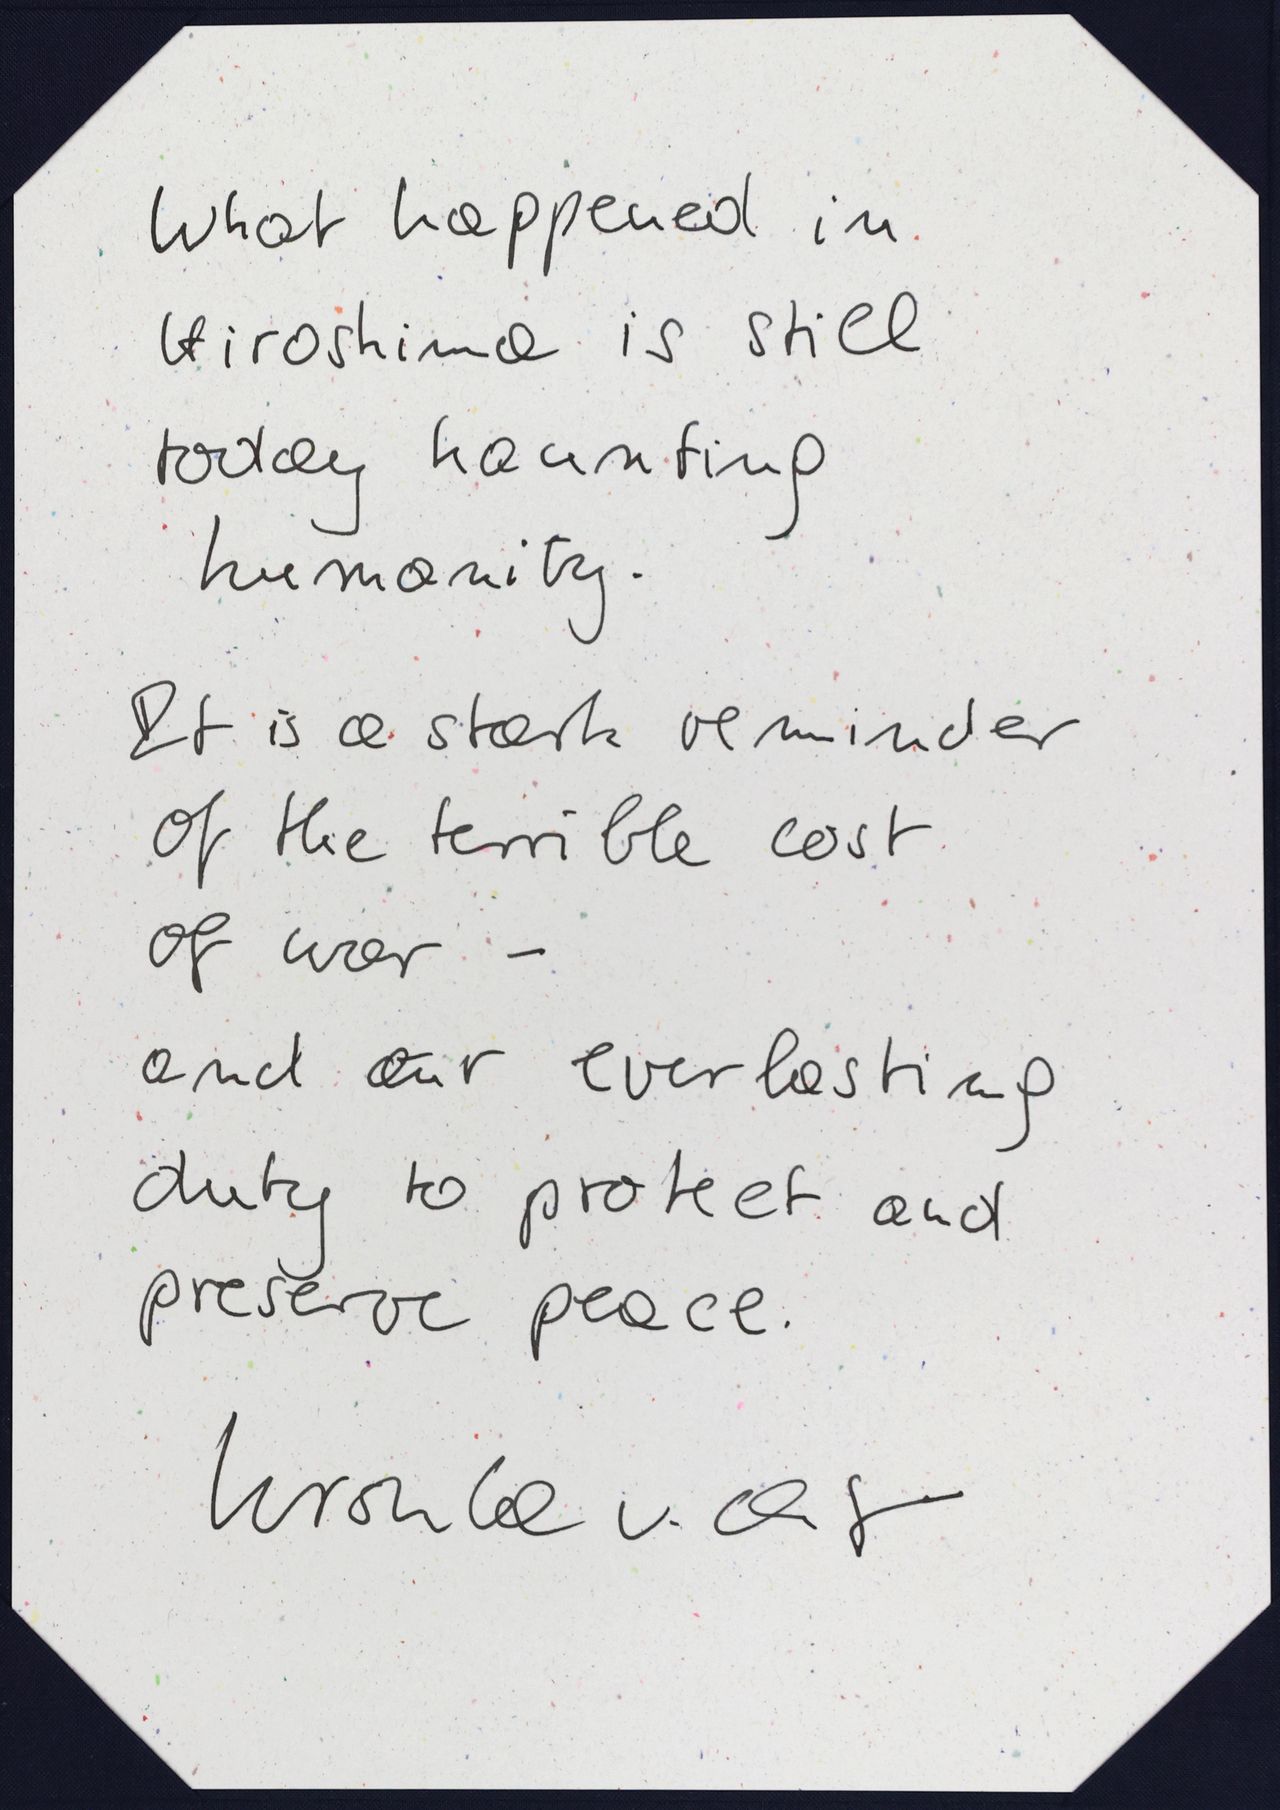 What happened in
Hiroshima is still
today haunting
humanity.
It is a stark reminder
of the terrible cost
of war –
and our everlasting
duty to protect and
preserve peace.
Ursula v.